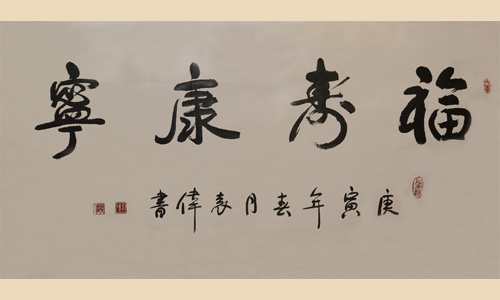 福寿康寧
庚寅年春月袁偉書